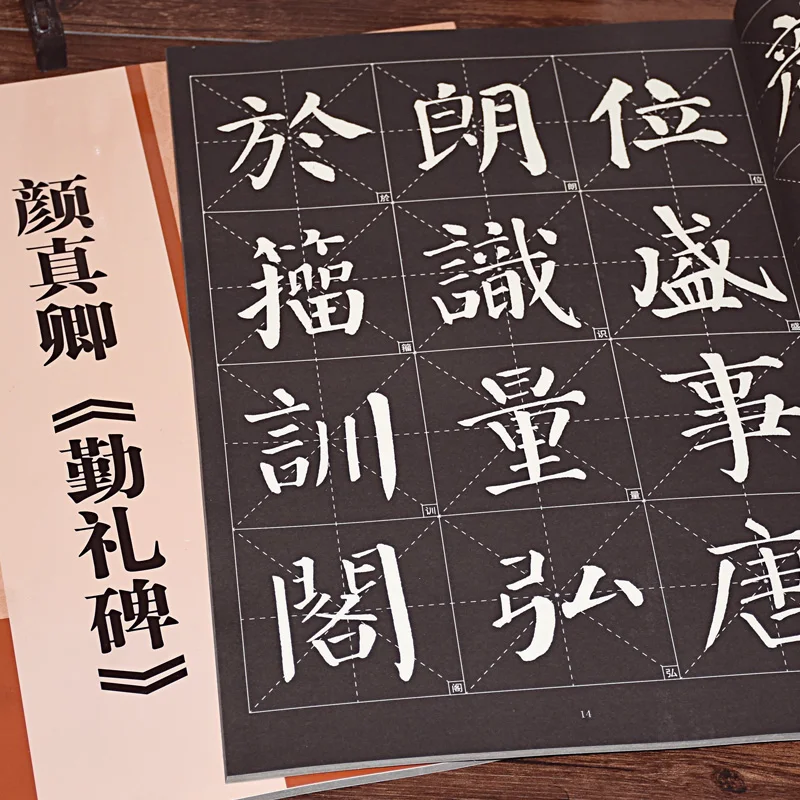 颜真卿《勤礼碑》
位盛事唐
位
盛
朗識量弘
朗
识
量
弘
於籀訓閣
於
籀
训
阁
14